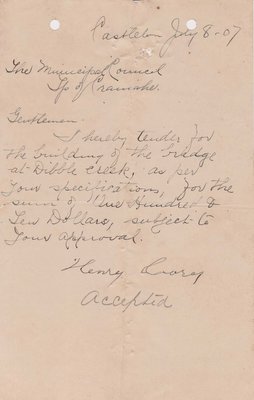 Castleton July 8-07
The Municipal Council
Tp of Cramahe.
Gentlemen.
I hereby tender for
the building of the bridge
at Dibble Creek, as per
your specifications, for the
sum of One Hundred &
Ten Dollars, subject to
your approval.
Henry
Accepted